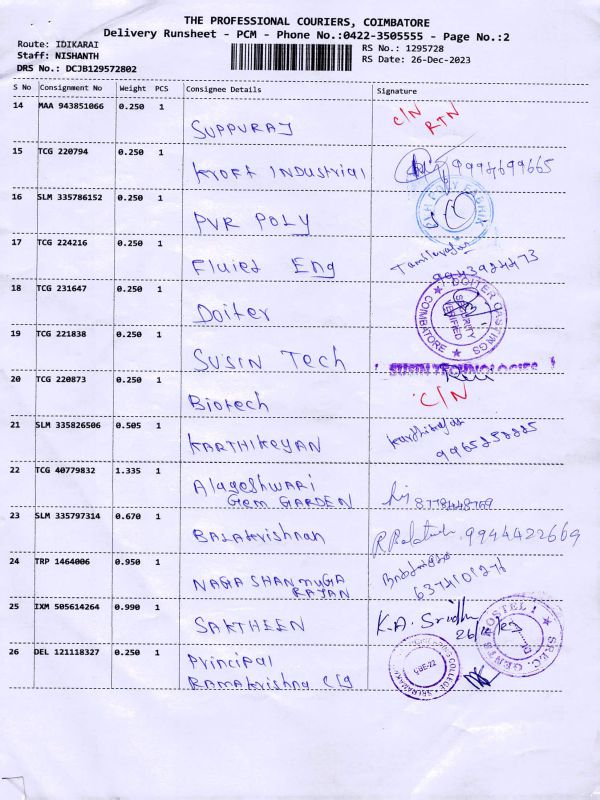 THE PROFESSIONAL COURIERS, COIMBATORE
Delivery Runsheet - PCM - Phone No.:0422-3505555 - Page No.:2
Route: IDIKARAI
RS No.: 1295728
Staff: NISHANTH
RS Date: 26-Dec-2023
DRS No.: DCJB129572802
S No Consignment No Weight PCS Consignee Details Signature
14 MAA 943851066 0.250 1
SUPPURAJ
C/N
RTN
15 TCG 220794 0.250 1
KROFT INDUSTRIAL 9994699665
16 SLM 335786152 0.250 1
PVR POLY
17 TCG 224216 0.250 1
Fluied Eng
9943924473
18 TCG 231647 0.250 1
Doiter
DOITER CASTINGS
COIMBATORE
SECURITY
VERIFIED
19 TCG 221838 0.250 1
SUSIN Tech
SUSIN TECHNOLOGIES
20 TCG 220873 0.250 1
Biotech
C/N
21 SLM 335826506 0.505 1
KARTHIKEYAN
22 TCG 40779832 1.335 1
Alageshwari
Gem GARDEN
23 SLM 335797314 0.670 1
BALAKrishnan
9944422669
24 TRP 1464006 0.950 1
NAGA SHANMUGA
RAJAN
25 IXM 505614264 0.990 1
SAKTHEEN
K.A. Sridhar
26/12/23
26 DEL 121118327 0.250 1
Principal
Ramakrishna Clg
COE-22